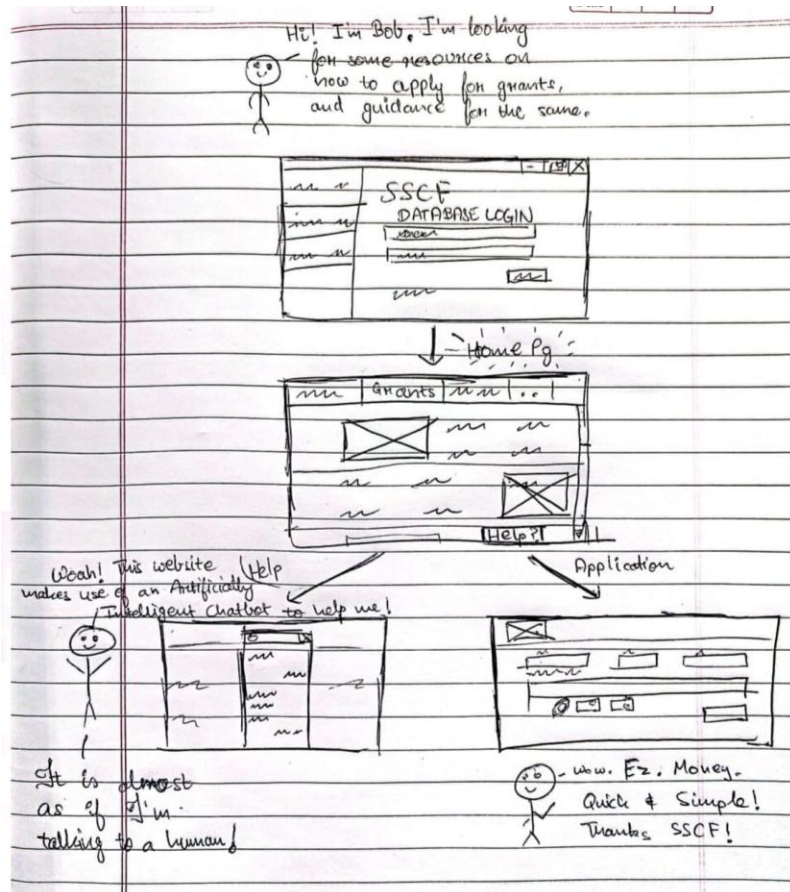 Hi! I'm Bob. I'm looking
for some resources on
how to apply for grants,
and guidance for the same.
SSCF
DATABASE LOGIN
Home Pg
Grants
Help?
Help
Application
Woah! This website
makes use of an Artificially
Intelligent Chatbot to help me!
It is almost
as if I'm
talking to a human!
wow. Ez. Money.
Quick & Simple!
Thanks SSCF!